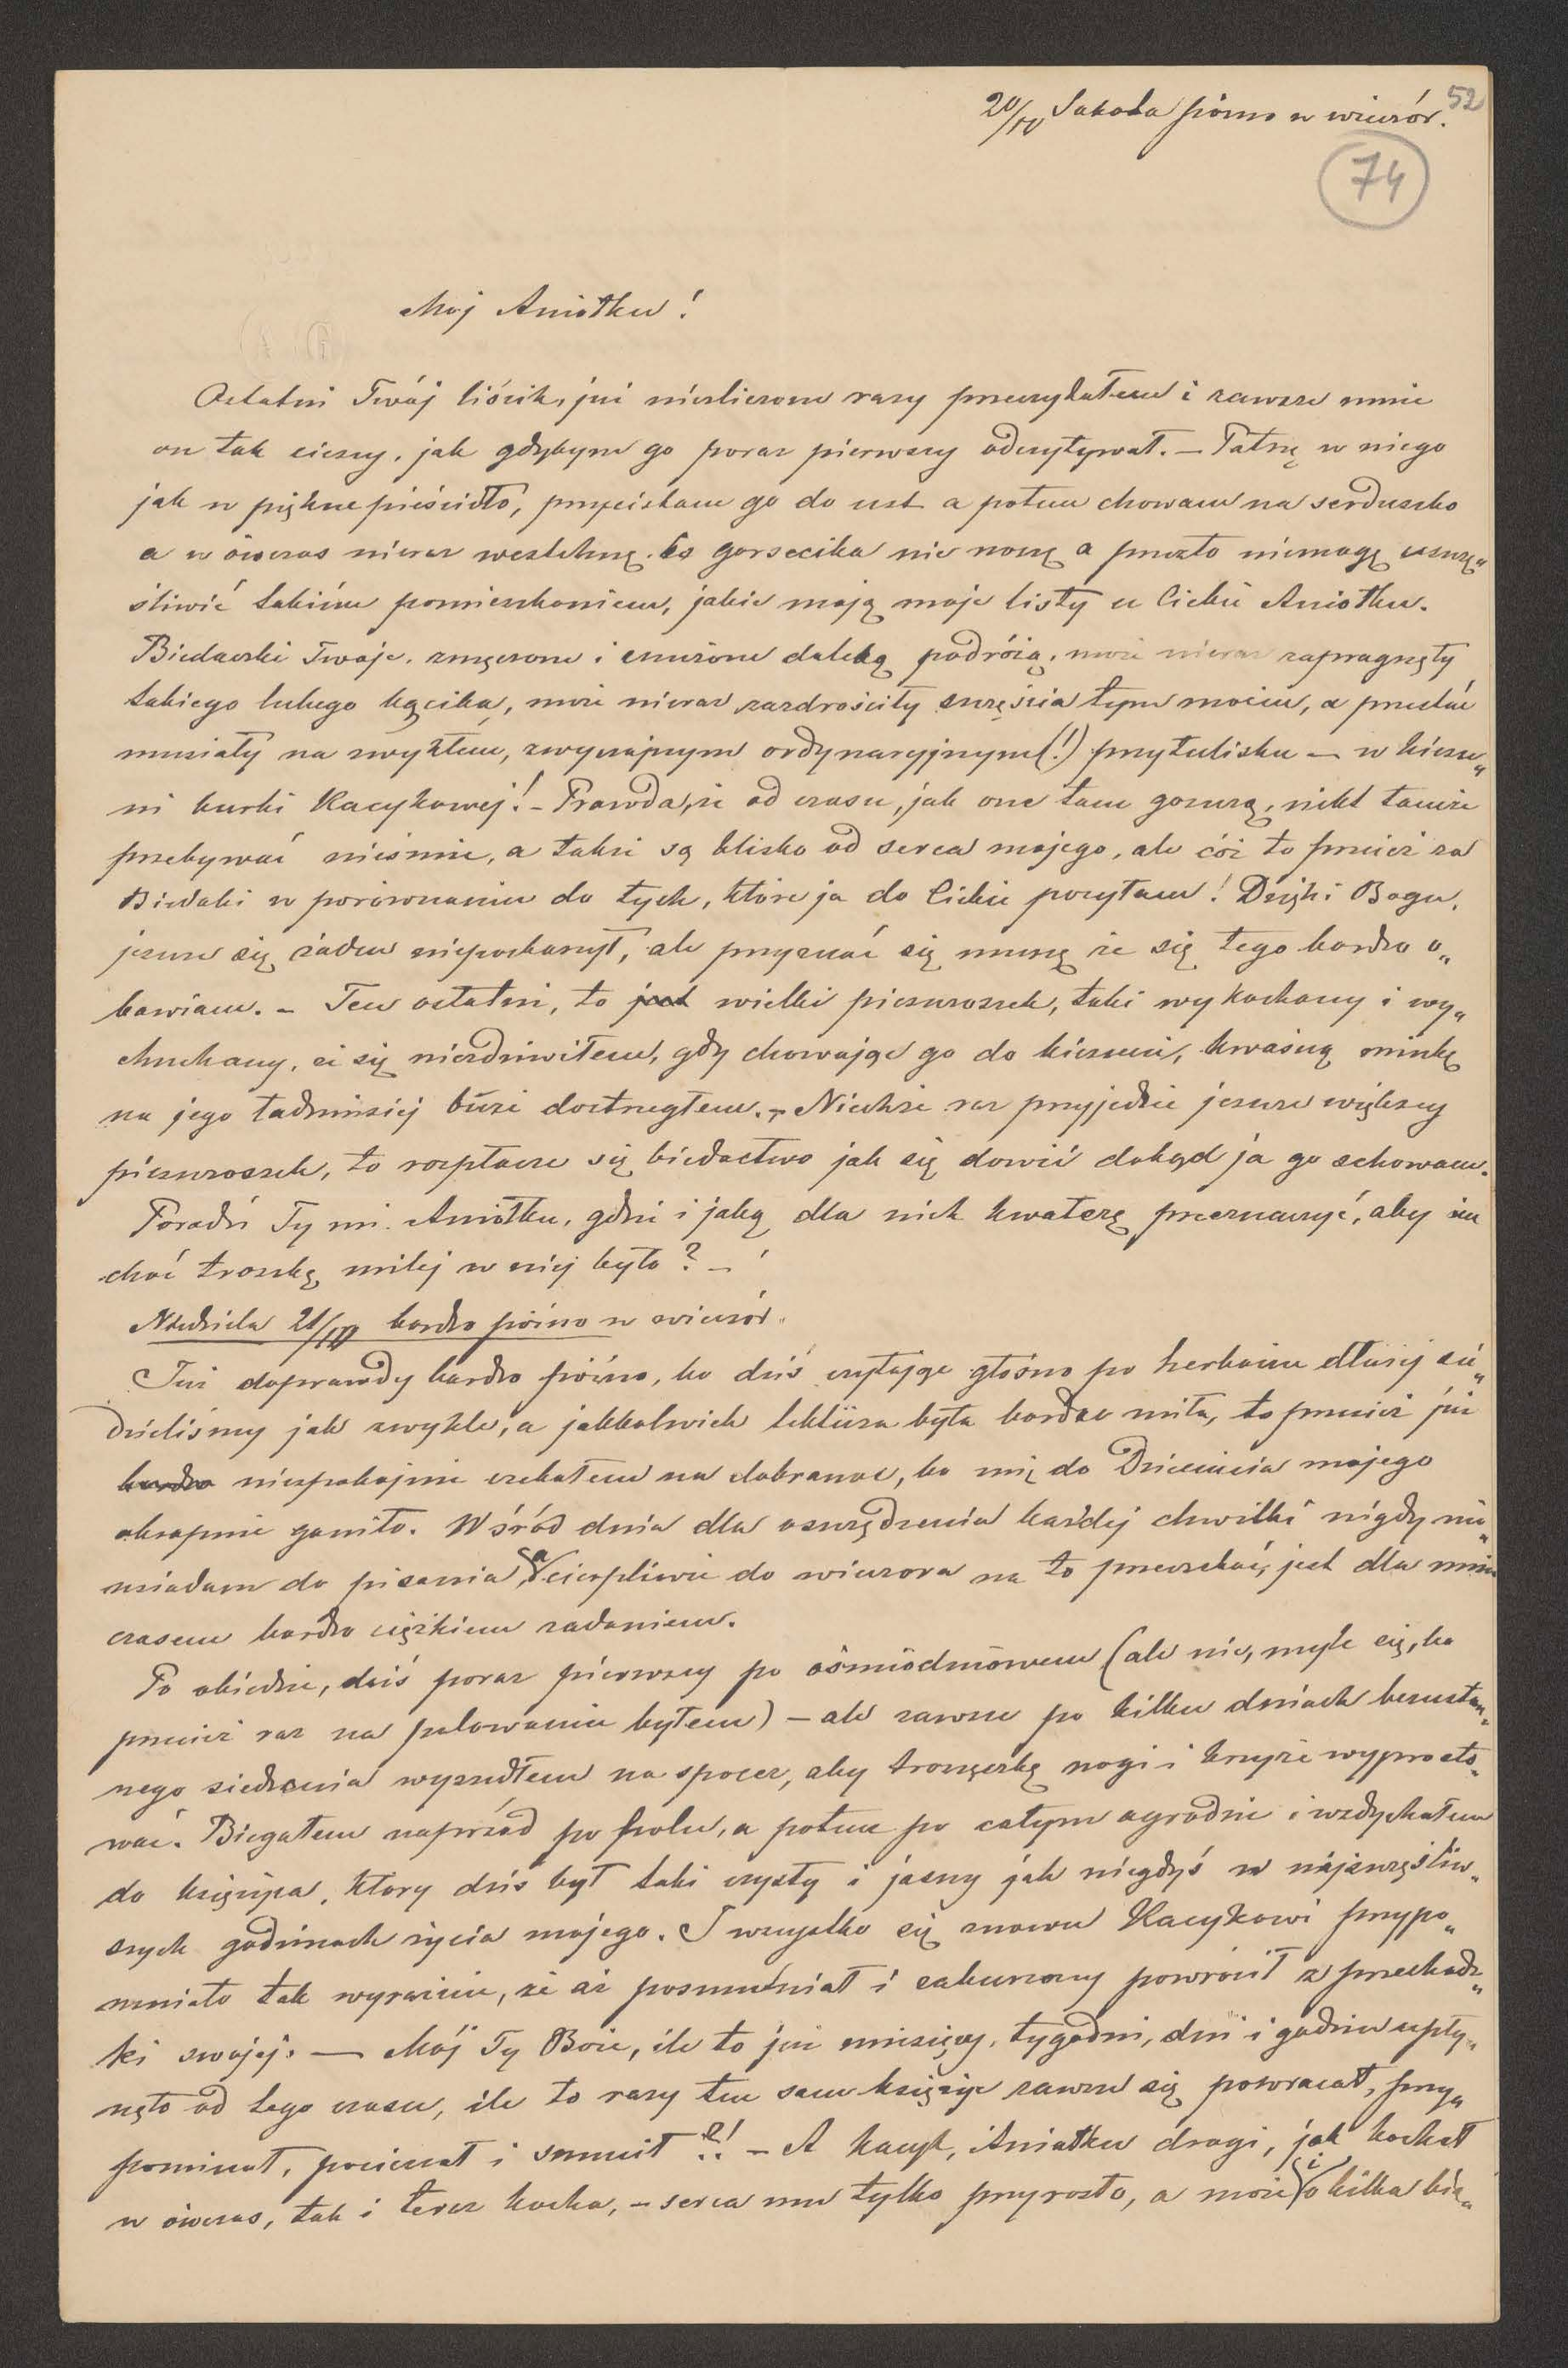 52
20/IV Sobota późno w wieczór.
74
Mój Aniołku!
Ostatni Twój liścik, już niezliczone razy przeczytałem i zawsze mnie
on tak cieszy, jak gdybym go poraz pierwszy odczytywał. — Patrzę w niego
jak w piękne pieścidło, przyciskam go do ust a potem chowam na serduszko
a w ówczas nieraz westchnę, że gorsecika nie noszę a przezto niemogę uszczę„
śliwić takiém pomieszkaniem, jakie mają moje listy u Ciebie Aniołku.
Biedaczki Twoje, zmęczone i znużone daleką podróżą, może nieraz zapragnęły
takiego lubego kącika, może nieraz zazdrościły szczęścia tym moim, a przestać
musiały na zwykłem, zwyczajnym ordynaryjnym (!) przytulisku — w kiesze„
ni kurki Kacykowej! – Prawda, że od czasu, jak one tam goszczą, nikt tamże
przebywać nieśmie, a także są blisko od serca mojego, ale cóż to przecież za
Biedaki w porównaniu do tych, które ja do Ciebie posyłam! Dzięki Bogu,
jeszcze się żaden nieposkarżył, ale przyznać się muszę że się tego bardzo o„
bawiam. – Ten ostatni, to jest wielki pieszczoszek, taki wykochany i wy„
chuchany, ei się niezdziwiłem, gdy chowając go do kieszeni, kwaśną minkę
na jego ładniusiej buzi dostrzegłem. – Niechże raz przyjedzie jeszcze większy
pieszczoszek, to rozpłacze się biedactwo jak się dowié dokąd ja go schowam.
Poradź Ty mi Aniołku, gdzie i jaką dla nich kwaterę przeznaczyć, aby im
choć troszkę milej w niej było? –
Niedziela 21/IV bardzo późno w wieczór.
Już doprawdy bardzo późno, bo dziś czytając głośno po herbacie dłużej sie„
dzieliśmy jak zwykle, a jakkolwiek lektüra była bardzo miła, to przecież już
bardzo niespokojnie czekałem na dobranoc, bo mię do Dziecięcia mojego
okropnie goniło. Wśród dnia dla oszczędzenia każdej chwilki nigdy nie„
usiadam do pisania, a cierpliwie do wieczora na to przeczekać, jest dla mnie
czasem bardzo ciężkiem zadaniem.
Po obiedzie, dziś poraz pierwszy po ośmiodniowem (ale nie, mylę się, bo
przecież raz na polowaniu byłem) – ale zawsze po kilku dniach bezustan„
nego siedzenia wyszedłem na spacer, aby troszeczkę nogi i krzyże wyprosto„
wać. Biegałem naprzód po polu, a potem po całym ogrodzie i wzdychałem
do księżyca, który dziś był taki czysty i jasny jak niegdyś w najszczęśliw„
szych godzinach życia mojego. I wszystko się znowu Kacykowi przypo„
mniało tak wyraźnie, że aż posmutniał i zachmurzony powrócił z przechadz„
ki swojej. — Mój Ty Boże, ile to już miesięcy, tygodni, dni i godzin upły„
nęło od tego czasu, ile to razy ten sam księżyc zawsze się powracał, przy„
pominał, pocieszał i smucił?! – A Kacyk, Aniołku drogi, jak kochał
w ówczas, tak i teraz kocha, – serca mu tylko przyrosło, a może i o kilka